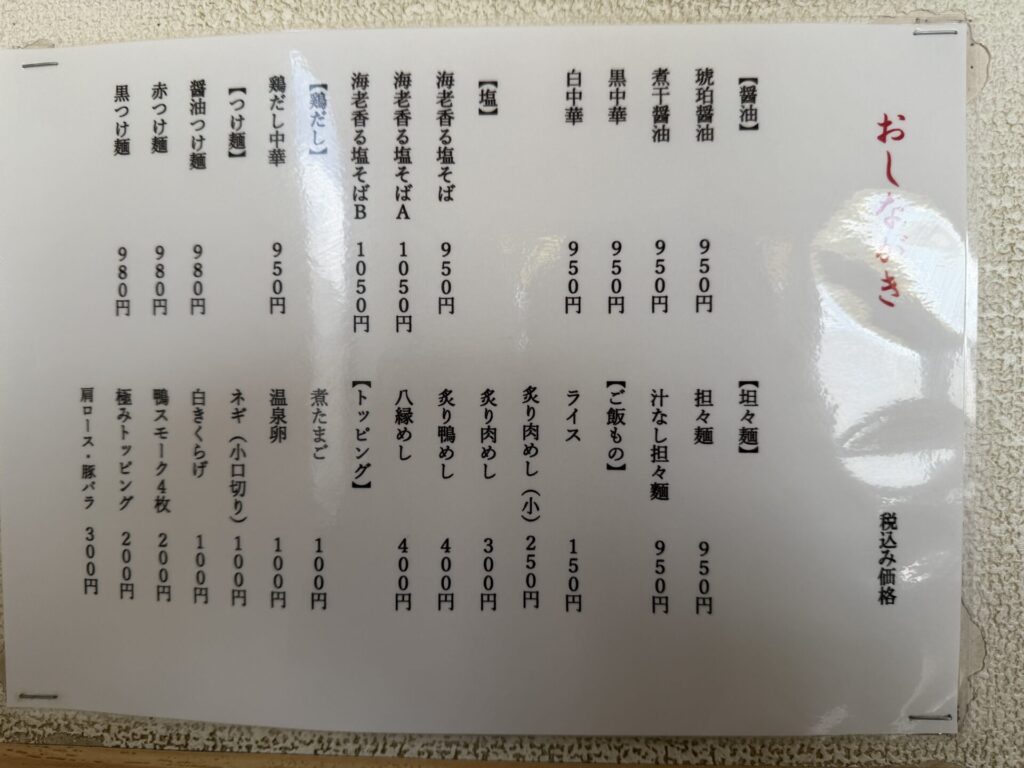 おしながき 税込み価格
【醤油】
琥珀醤油 950円
煮干醤油 950円
黒中華 950円
白中華 950円
【塩】
海老香る塩そば 950円
海老香る塩そばA 1050円
海老香る塩そばB 1050円
【鶏だし】
鶏だし中華 950円
【つけ麺】
醤油つけ麺 980円
赤つけ麺 980円
黒つけ麺 980円
【坦々麺】
担々麺 950円
汁なし担々麺 950円
【ご飯もの】
ライス 150円
炙り肉めし（小） 250円
炙り肉めし 300円
炙り鴨めし 400円
八縁めし 400円
【トッピング】
煮たまご 100円
温泉卵 100円
ネギ（小口切り） 100円
白きくらげ 100円
鴨スモーク4枚 200円
極みトッピング 200円
肩ロース・豚バラ 300円